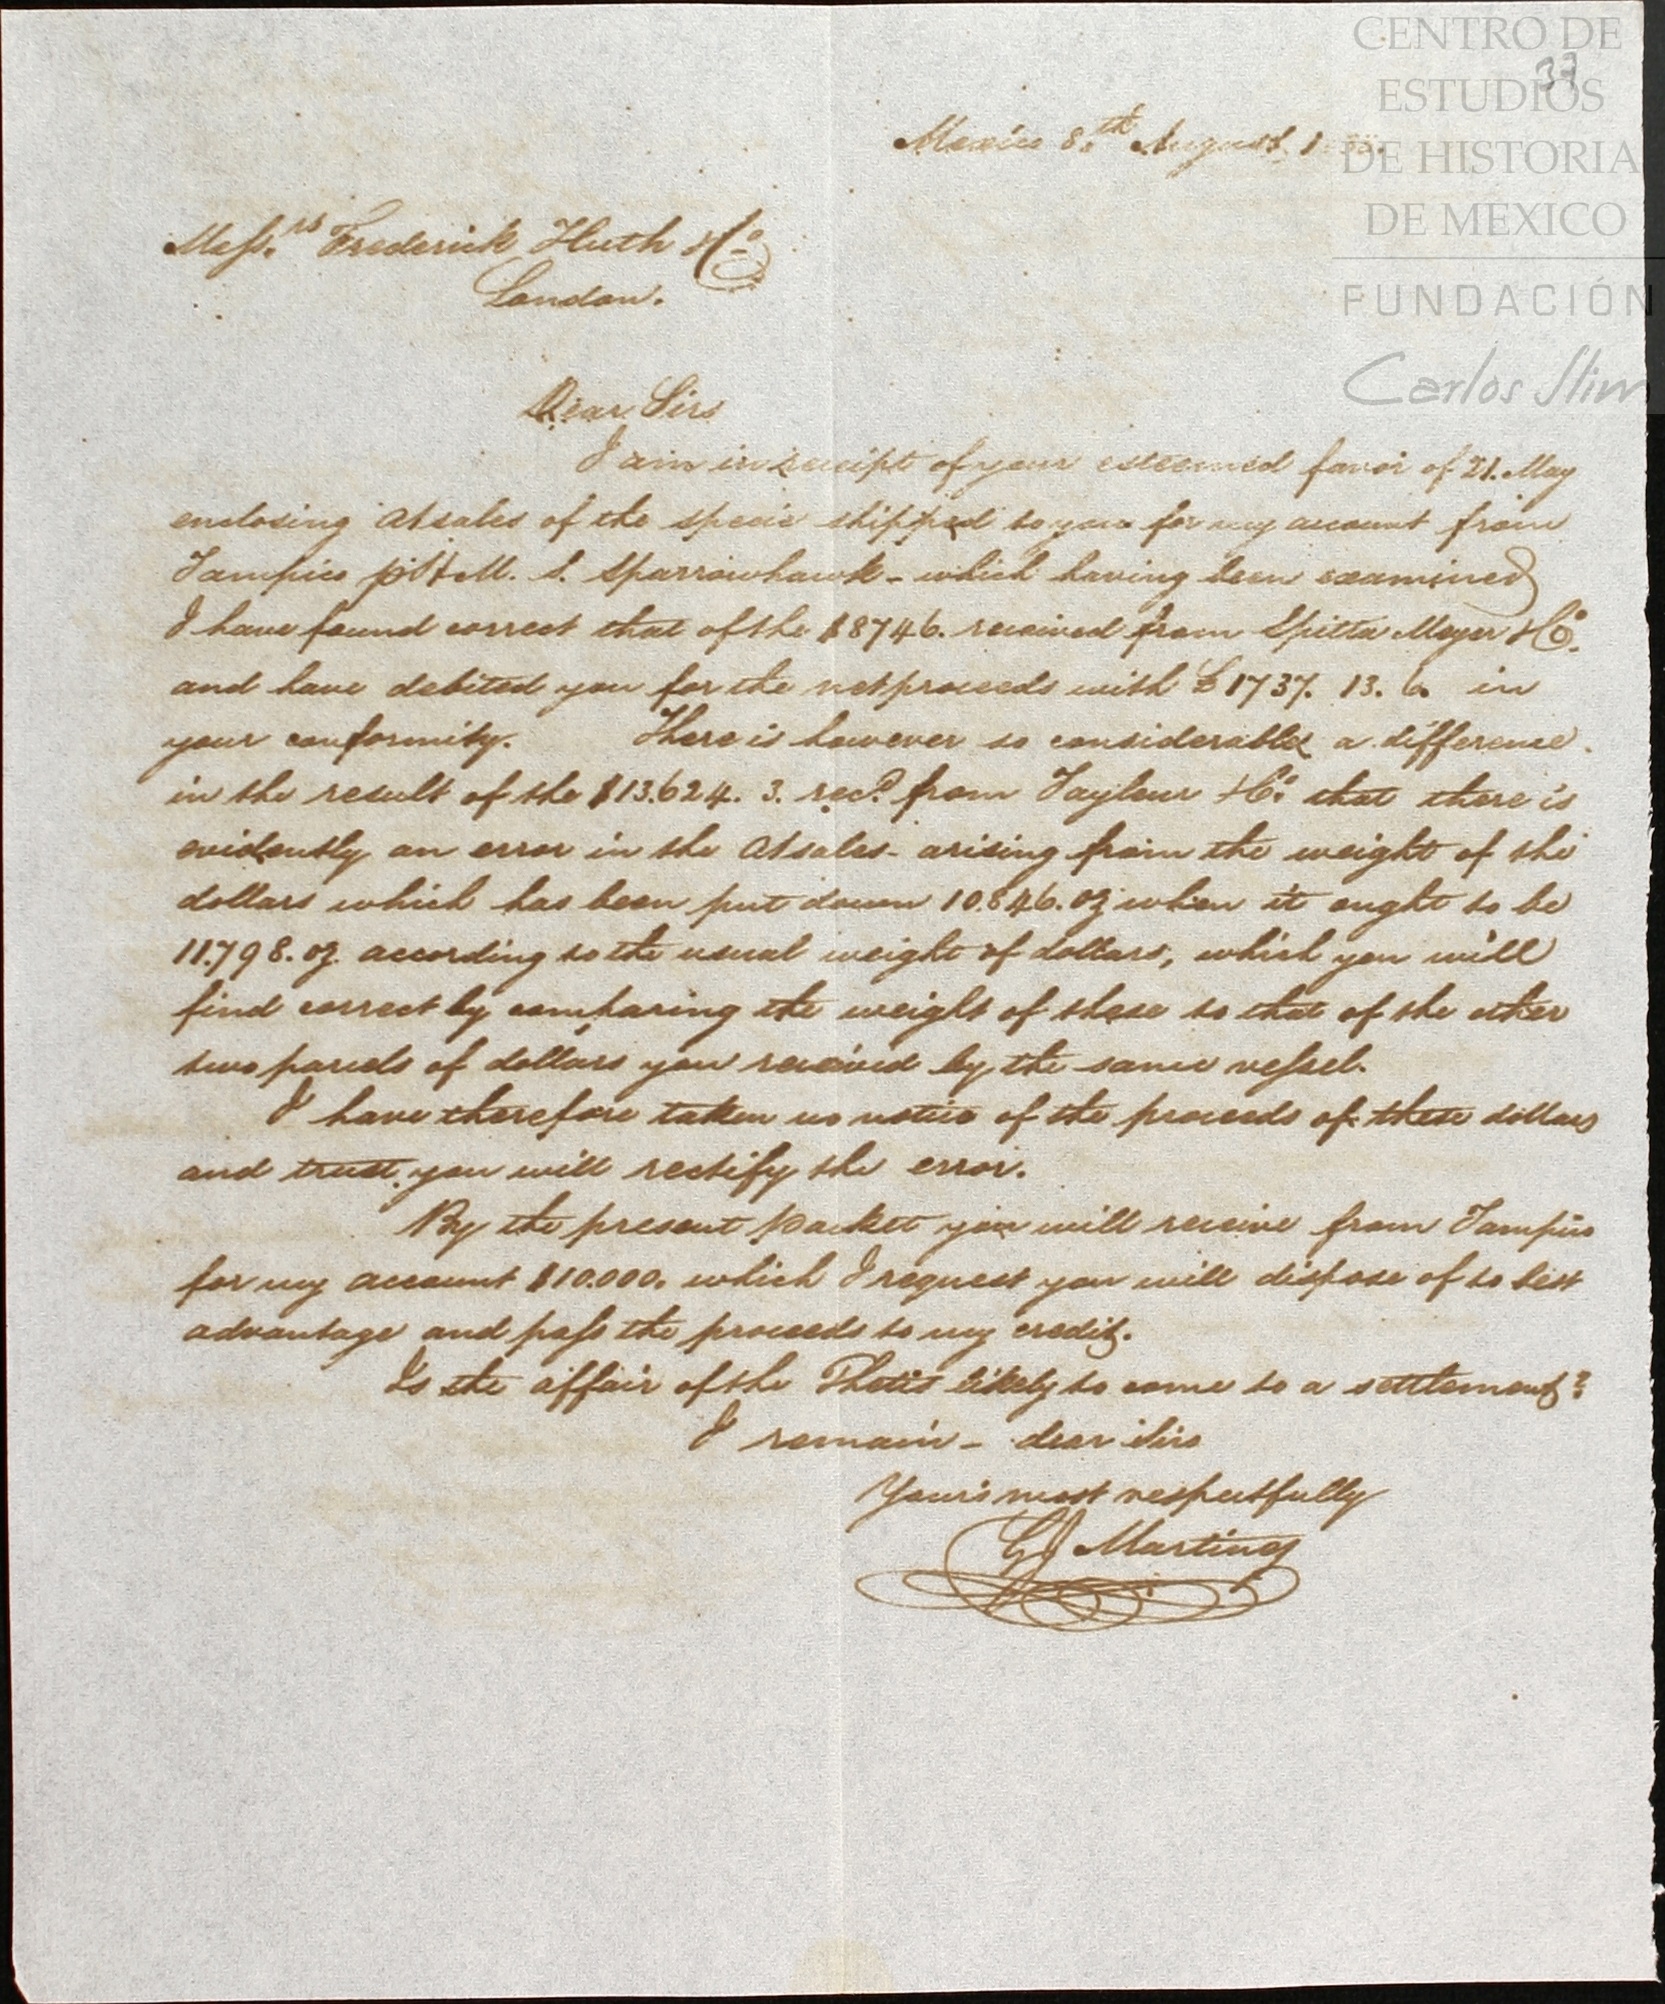 CENTRO DE
ESTUDIOS
DE HISTORIA
DE MEXICO
FUNDACIÓN
Carlos Slim
33
Mexico 8.th August 1
Mess.rs Frederick Huth & Co
London.
Dear Sirs
I am in receipt of your esteemed favor of 21. May
enclosing A/sales of the specie shipped to you for my account from
Tampico p H. M. S. Sparrowhawk - which having been examined
I have found correct that of the $8746. received from Spitta Meyer & Co.
and have debited you for the net proceeds with £1737. 13. 6. in
your conformity. There is however so considerable a difference
in the result of the $13.624. 3. recd. from Tayleur & Co. that there is
evidently an error in the A/sales - arising from the weight of the
dollars which has been put down 10.846. oz when it ought to be
11.798. oz. according to the usual weight of dollars, which you will
find correct by comparing the weight of these to that of the other
two parcels of dollars you received by the same vessel.
I have therefore taken no notice of the proceeds of these dollars
and trust you will rectify the error.
By the present packet you will receive from Tampico
for my account $10.000. which I request you will dispose of to best
advantage and pass the proceeds to my credit.
Is the affair of the Thetis likely to come to a settlement?
I remain - dear Sirs
Yours most respectfully
G J Martinez